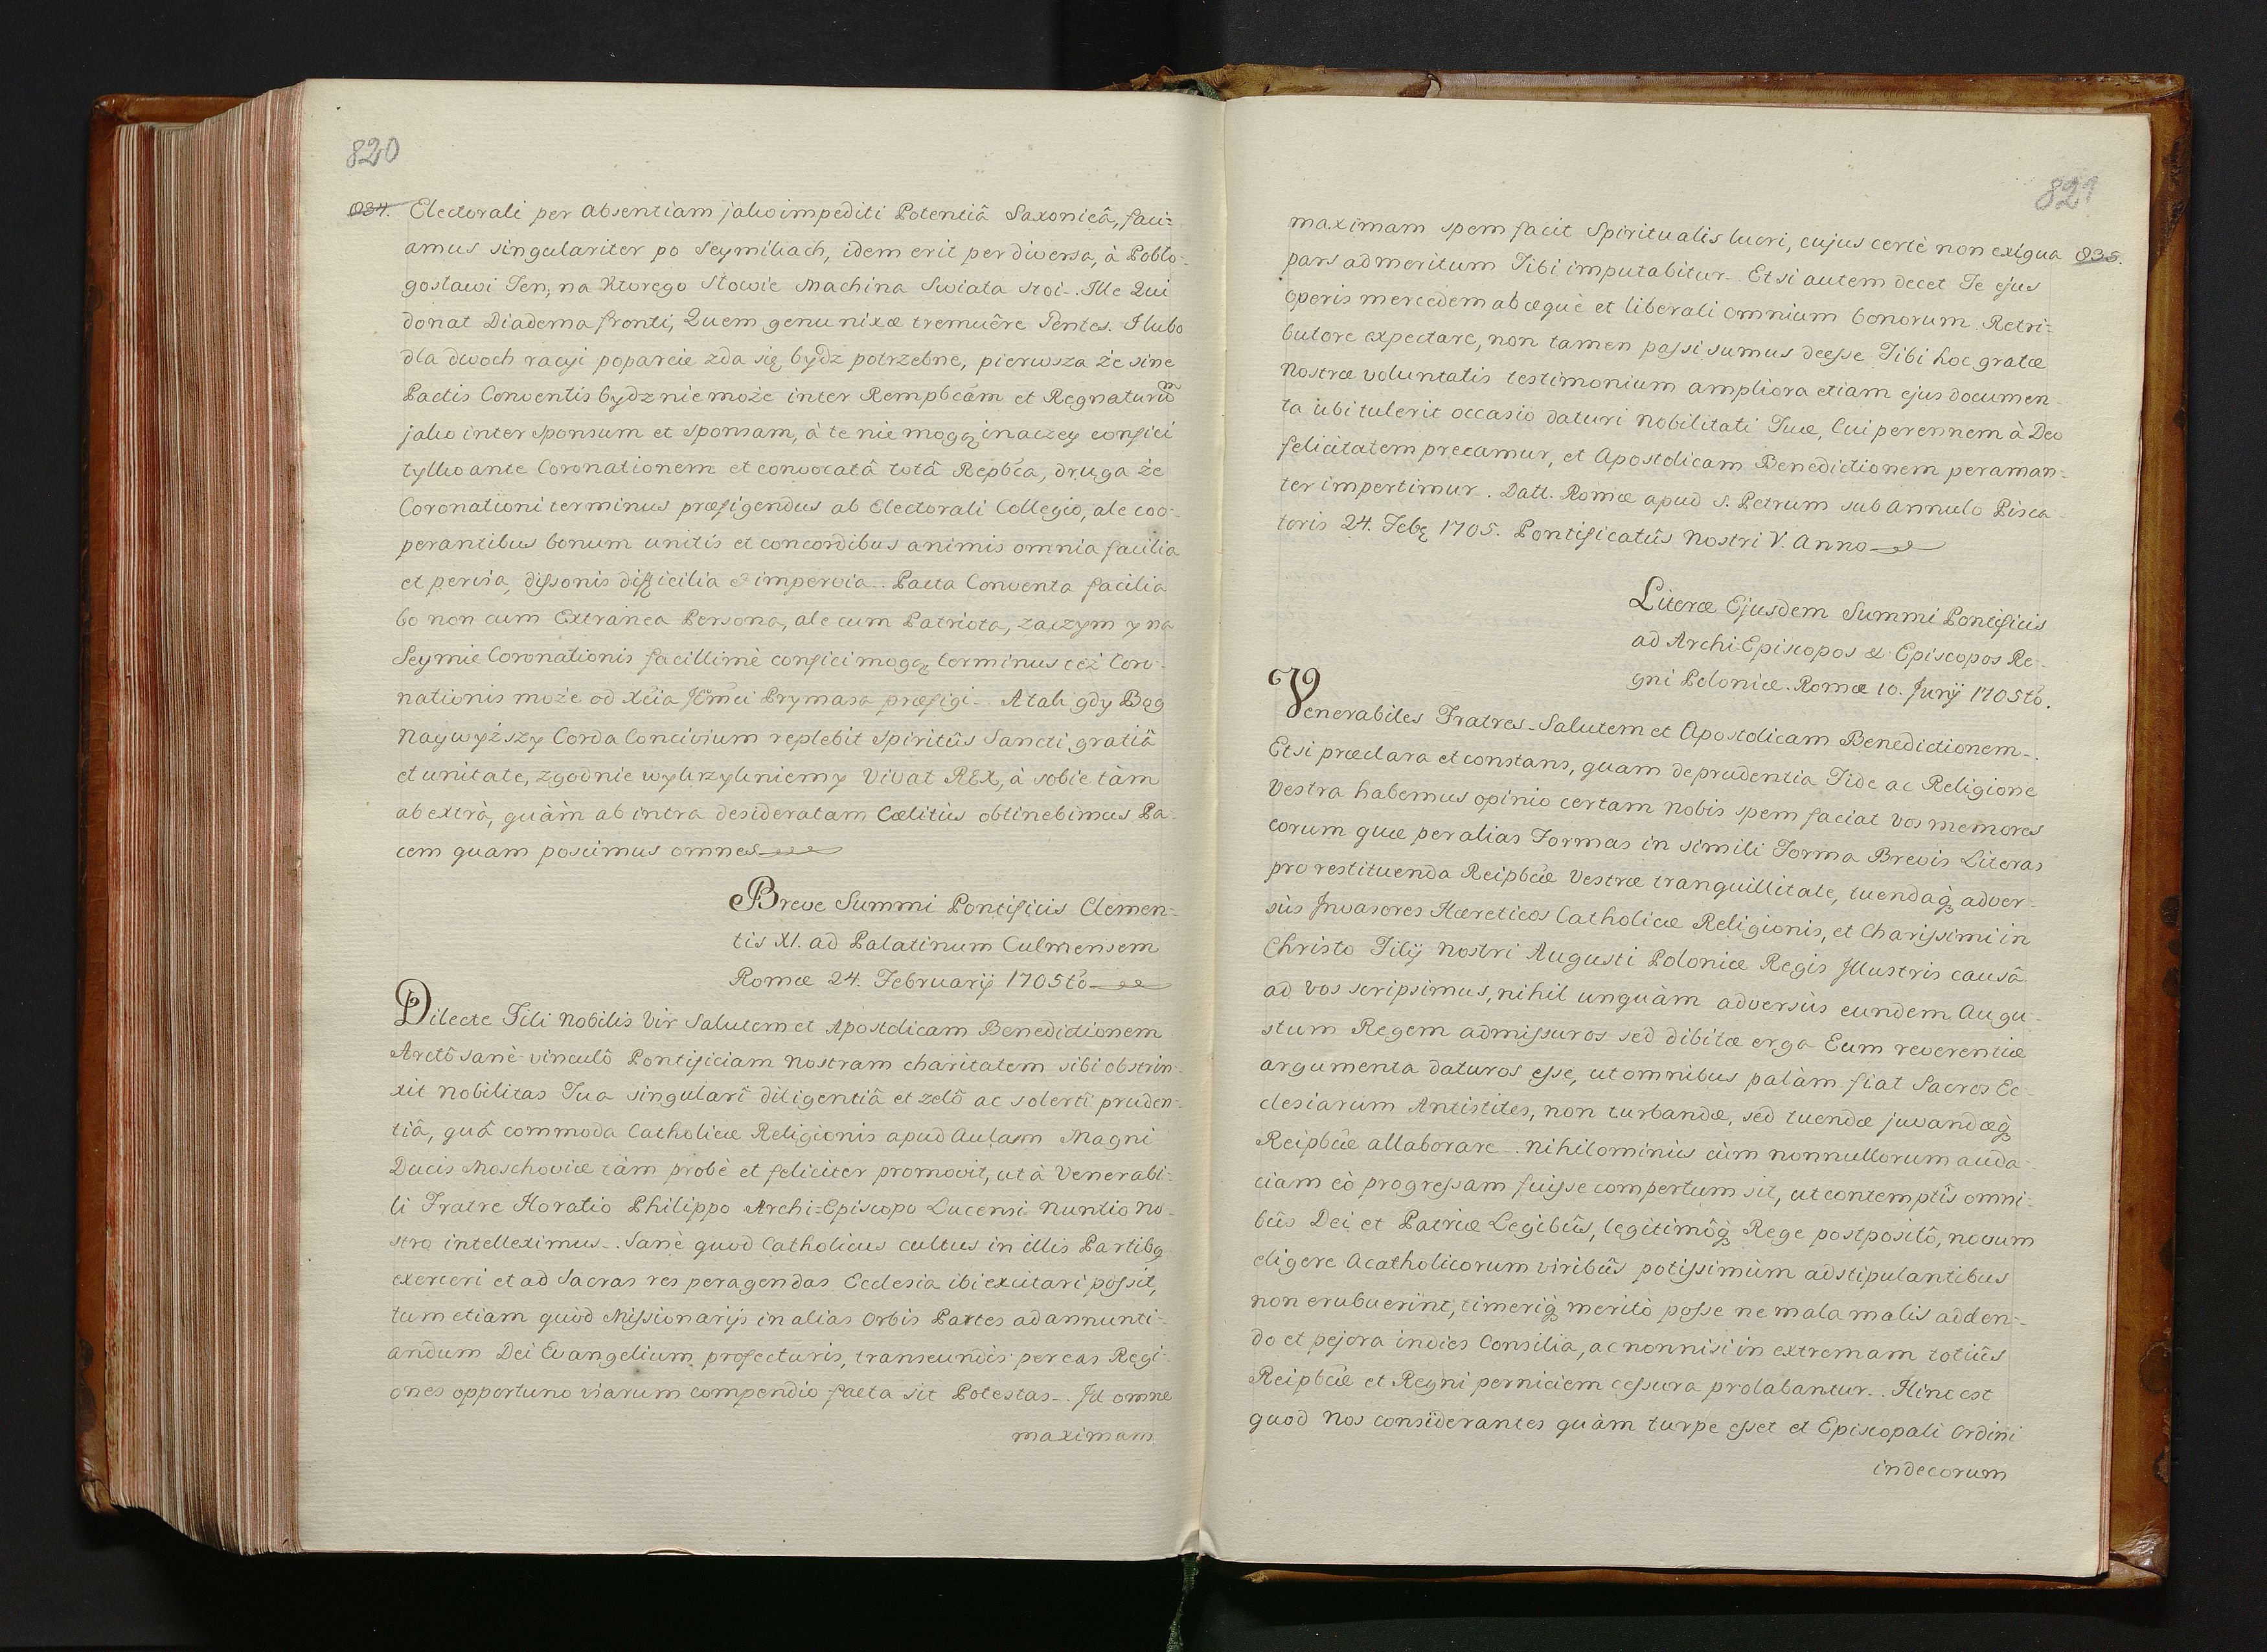 820
834. Electorali per absentiam jako impediti Potentiâ Saxonicâ, faci=
amus singulariter po Seymikach, idem erit per diversa, à Pobło-
gosławi Ten, na Ktorego Słowie Machina Swiata stoi. Ille Qui
donat Diadema fronti, Quem genu nixæ tremuêre Gentes. I lubo
dla dwoch racyi poparcie zda się bydz potrzebne, pierwsza że sine
Pactis Conventis bydz nie może inter Rempbcam et Regnaturũ
jako inter Sponsum et Sponsam, à te nie mogą inaczey confici
tylko ante Coronationem et convocatâ totâ Repbca, druga że
Coronationi terminus præfigendus ab Electorali Collegio, ale coo-
perantibus bonum unitis et concordibus animis omnia facilia
et pervia, dissonis difficilia & impervia. Pacta Conventa facilia
bo non cum Extranea Persona, ale cum Patriota, zaczym y na
Seymie Coronationis facillimè confici mogą terminus też Coro-
nationis może od Xcia Jmci Prymasa præfigi. A tak gdy Bog
Naywyższy Corda Concivium replebit Spiritûs Sancti gratiâ
et unitate, zgodnie wykrzykniemy Vivat REX, à sobie tàm
ab extrà, quàm ab intra desideratam Cælitùs obtinebimus Pa-
cem quam poscimus omnes
Breve Summi Pontificis Clemen-
tis XI. ad Palatinum Culmensem
Romæ 24. Februarij 1705to
Dilecte Fili Nobilis Vir Salutem et Apostolicam Benedictionem
Arctô sanè vinculô Pontificiam Nostram charitatem sibi obstrin-
xit Nobilitas Tua singularî diligentiâ et zelô ac solertî pruden-
tiâ, quâ commoda Catholicæ Religionis apud Aulam Magni
Ducis Moschoviæ tàm probè et feliciter promovit, ut à Venerabi-
li Fratre Horatio Philippo Archi-Episcopo Lucensi Nuntio No-
stro intelleximus. Sanè quod Catholicus cultus in illis Partibq
exerceri et ad Sacras res peragendas Ecclesia ibi excitari possit,
tum etiam quòd Missionarijs in alias Orbis Partes ad annunti-
andum Dei Evangelium profecturis, transeundis per eas Regi-
ones opportuno viarum compendio facta sit Potestas. Id omne
maximam
821
maximam spem facit Spiritualis lucri, cujus certè non exigua 835.
pars ad meritum Tibi imputabitur. Etsi autem decet Te ejus
operis mercedem ab æquè et liberali omnium bonorum Retri-
butore expectare, non tamen passi sumus deesse Tibi hoc gratæ
Nostræ voluntatis testimonium ampliora etiam ejus documen
ta ubi tulerit occasio daturi Nobilitati Tuæ, Cui perennem à Deo
felicitatem precamur, et Apostolicam Benedictionem peraman-
ter impertimur. Datt. Romæ apud S. Petrum sub Annulo Pisca-
toris 24. Febq 1705. Pontificatûs Nostri V. Anno
Literæ Ejusdem Summi Pontificis
ad Archi-Episcopos & Episcopos Re-
gni Poloniæ. Romæ 10. Junij 1705to.
Venerabiles Fratres. Salutem et Apostolicam Benedictionem.
Etsi præclara et constans, quam de prudentia Fide ac Religione
Vestra habemus opinio certam nobis spem faciat Vos memores
eorum quæ per alias Formas in simili Forma Brevis Literas
pro restituenda Reipbcæ Vestræ tranquillitate, tuendaq adver-
sùs Invasores Hæreticos Catholicæ Religionis, et Charissimi in
Christo Filij Nostri Augusti Poloniæ Regis Illustris causâ
ad Vos scripsimus, nihil unquàm adversùs eundem Augu-
stum Regem admissuros sed dibitæ erga Eum reverentiæ
argumenta daturos esse, ut omnibus palàm fiat Sacros Ec-
clesiarum Antistites, non turbandæ, sed tuendæ juvandæq
Reipbcæ allaborare. Nihilominùs cùm nonnullorum auda-
ciam eò progressam fuisse compertum sit, ut contemptîs omni-
bûs Dei et Patriæ Legibûs, legitimôq Rege postpositô, novum
eligere Acatholicorum viribûs potissimùm adstipulantibus
non erubuerint, timeriq meritò posse ne mala malis adden-
do et pejora indies Consilia, ac nonnisi in extremam totiûs
Reipbcæ et Regni perniciem cessura prolabantur. Hinc est
quod Nos considerantes quàm turpe esset et Episcopali Ordini
indecorum